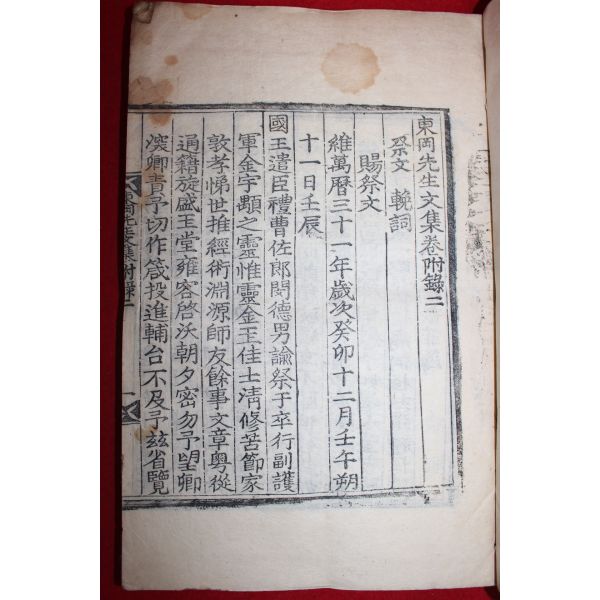 東岡先生文集卷附錄二
祭文 輓詞
賜祭文
維萬曆三十一年歲次癸卯十二月壬午朔
十一日壬辰
國王遣臣禮曹佐郎閔德男諭祭于卒行副護
軍金宇顒之靈惟靈金玉佳士淸修苦節家
敦孝悌世推經術淵源師友餘事文章粤從
通籍旋盛玉堂雍容啓沃朝夕密勿予望卿
深卿責予切作箴投進輔台不及予玆省覽
東岡先生文集附錄二 一